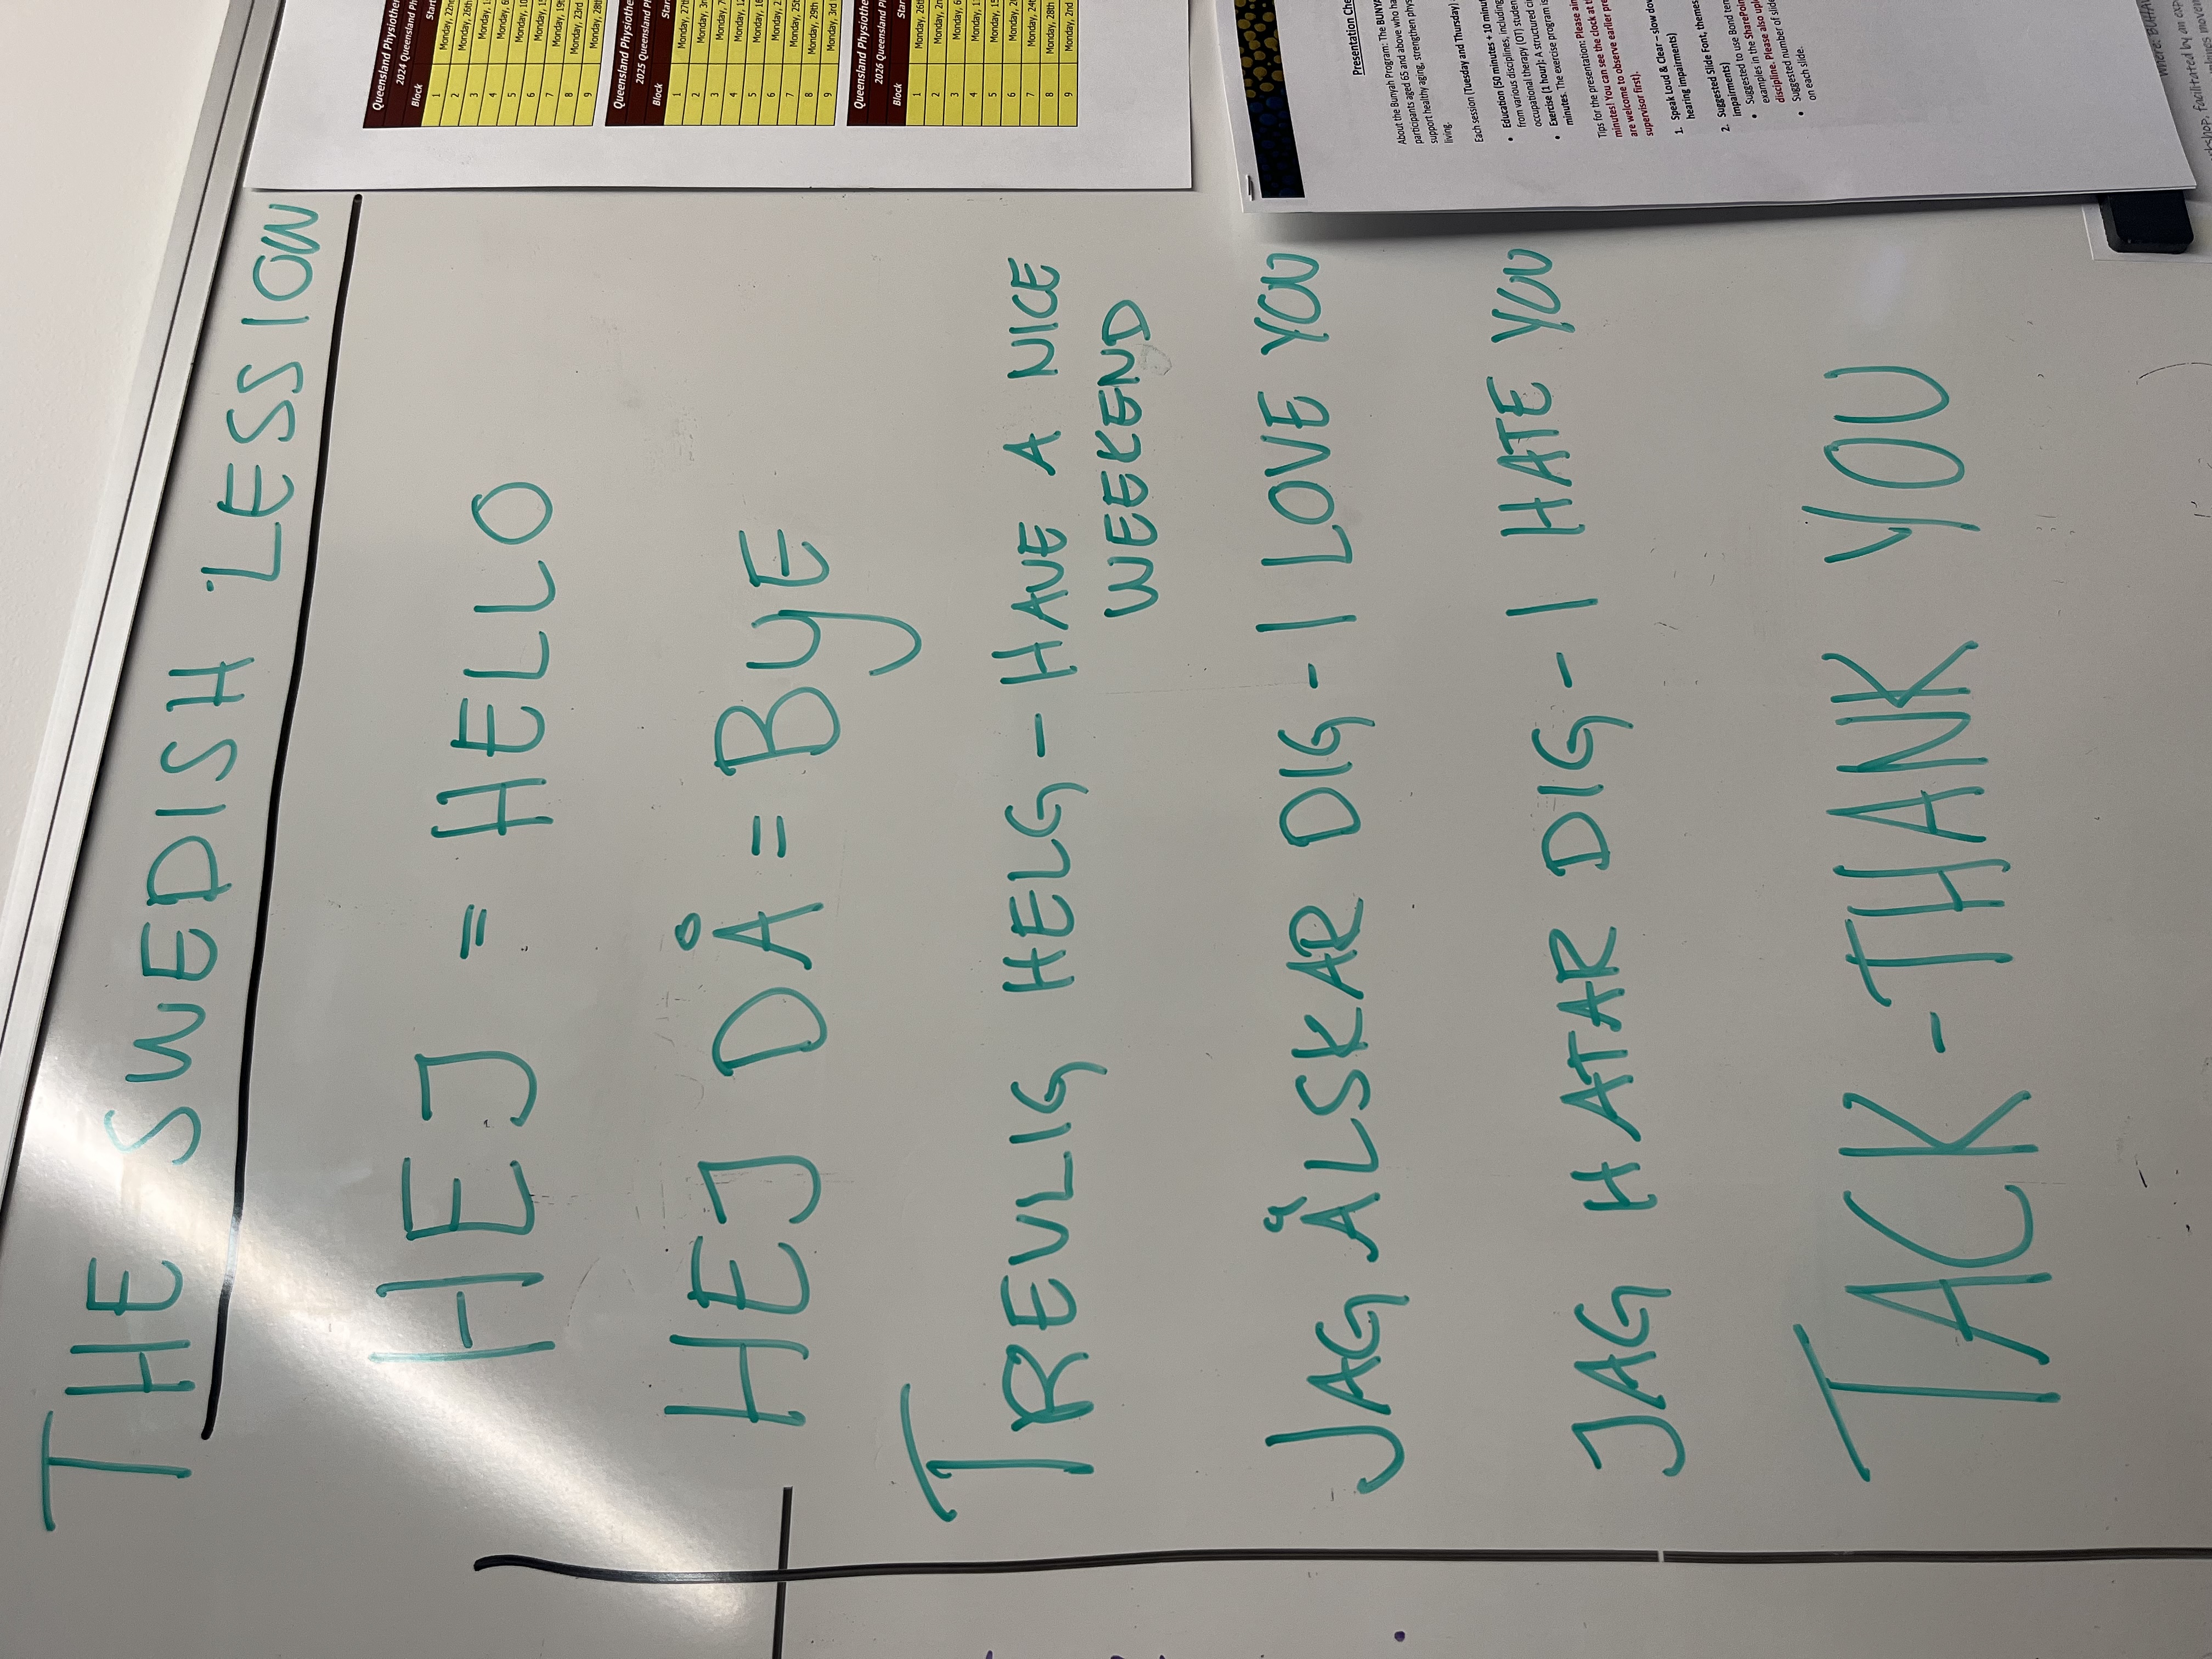 THE SWEDISH LESSION
HEJ = HELLO
HEJ DÅ = BYE
TREVLIG HELG - HAVE A NICE
WEEKEND
JAG ÅLSKAR DIG - I LOVE YOU
JAG HATAR DIG - I HATE YOU
TACK - THANK YOU
Queensland Physiother
2024 Queensland Ph
Block Star
1 Monday, 22nd
2 Monday, 26th
3 Monday,
4 Monday,
5 Monday,
6 Monday,
7 Monday,
8 Monday, 23rd
9 Monday, 28th
Queensland Physiother
2025 Queensland Pl
Block Sta
1 Monday, 27th
2 Monday,
3 Monday,
4 Monday,
5 Monday,
6 Monday,
7 Monday,
8 Monday, 29th
9 Monday, 3rd
Queensland Physiothe
2026 Queensland Pl
Block Sta
1 Monday, 26th
2 Monday,
3 Monday,
4 Monday,
5 Monday,
6 Monday,
7 Monday,
8 Monday, 28th
9 Monday, 2nd
Presentation Che
About the Bunyah Program: The BUNYA
participants aged 65 and above who ha
support healthy aging, strengthen phys
living.
Each session (Tuesday and Thursday)
• Education (50 minutes + 10 minut
from various disciplines, including
occupational therapy (OT) studen
• Exercise (1 hour): A structured ci
minutes. The exercise program is
Tips for the presentation: Please ain
minutes! You can see the clock at th
are welcome to observe earlier pre
supervisor first).
1. Speak Loud & Clear – slow dow
hearing impairments)
2. Suggested Slide Font, themes
impairments)
• Suggested to use Bond tem
examples in the SharePoin
discipline. Please also uplo
• Suggested number of slide
on each slide.
Where:
facilitated by an exp